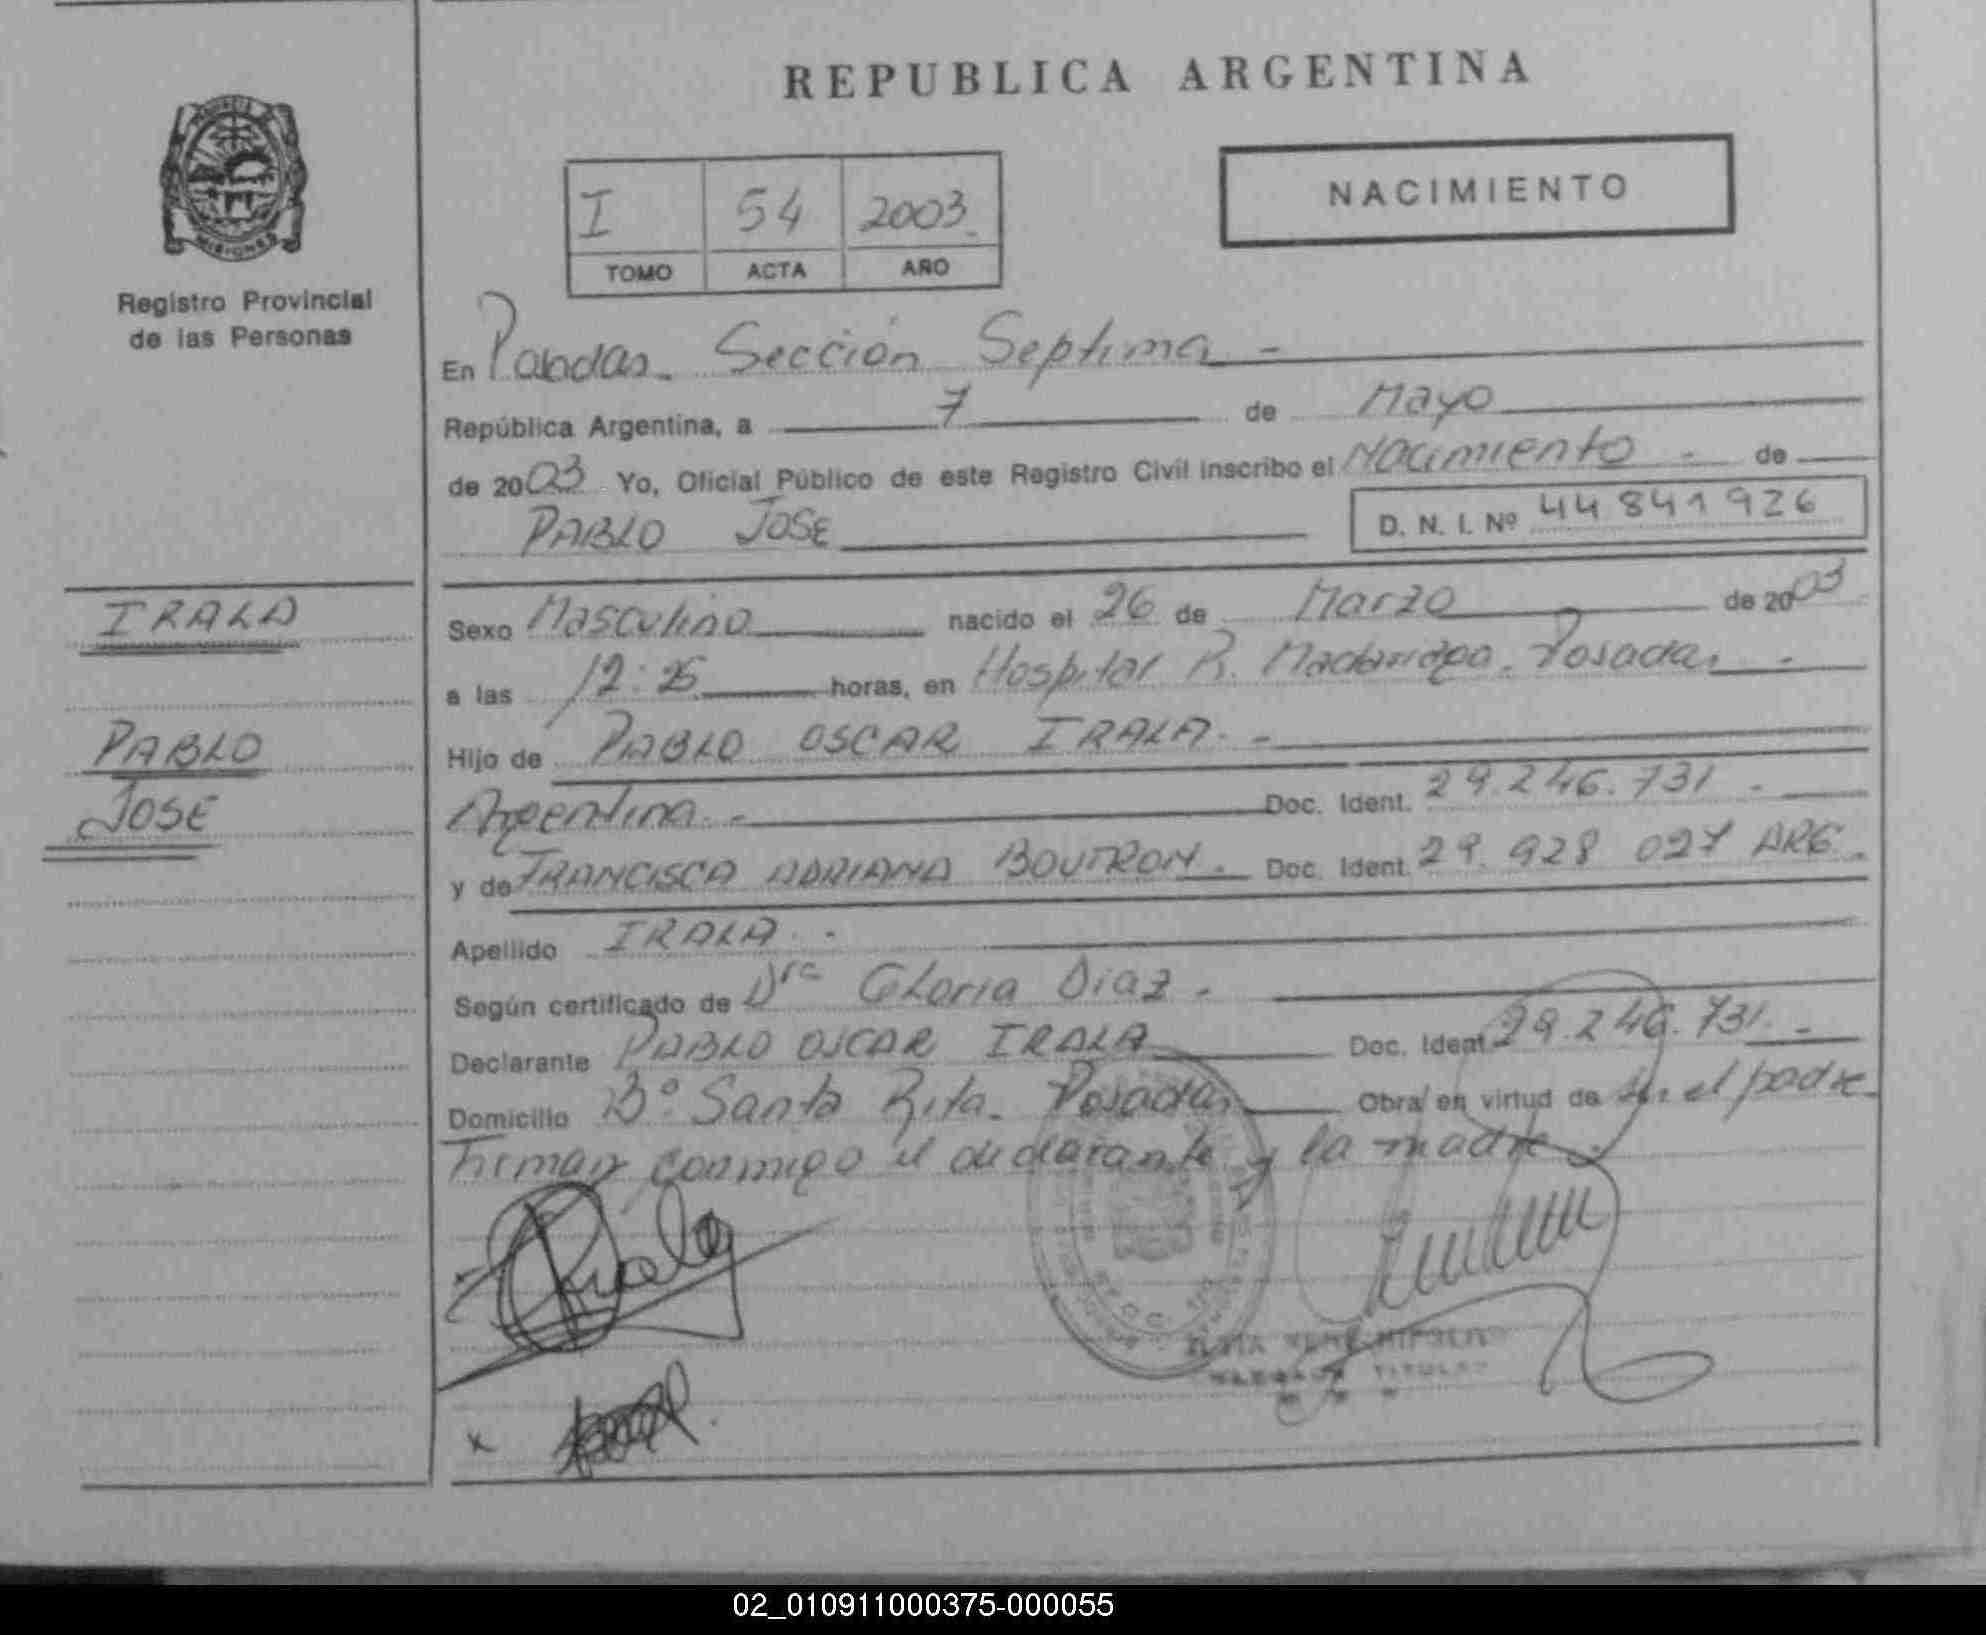 REPUBLICA ARGENTINA
NACIMIENTO
I 54 2003
TOMO ACTA AÑO
MISIONES
Registro Provincial
de las Personas
En Posadas. Sección Septima -
República Argentina, a 7 de Mayo
de 2003 Yo, Oficial Público de este Registro Civil inscribo el Nacimiento - de
PABLO JOSE
D. N. I. Nº 44841926
IRALA
PABLO
JOSE
Sexo Masculino nacido el 26 de Marzo de 2003
a las 12:25 horas, en Hospital R. Madariaga. Posadas -
Hijo de PABLO OSCAR IRALA. -
Argentina. - Doc. Ident. 29.246.731 -
y de FRANCISCA ADRIANA BOUTRON. Doc. Ident. 29.928 027 ARG.
Apellido IRALA. -
Según certificado de Dra Gloria Diaz.
Declarante PABLO OSCAR IRALA Doc. Ident. 29.246.731. -
Domicilio Bº Santa Rita. Posadas Obra en virtud de ser el padre
Firman conmigo el declarante y la madre.
TITULAR
x
02_010911000375-000055